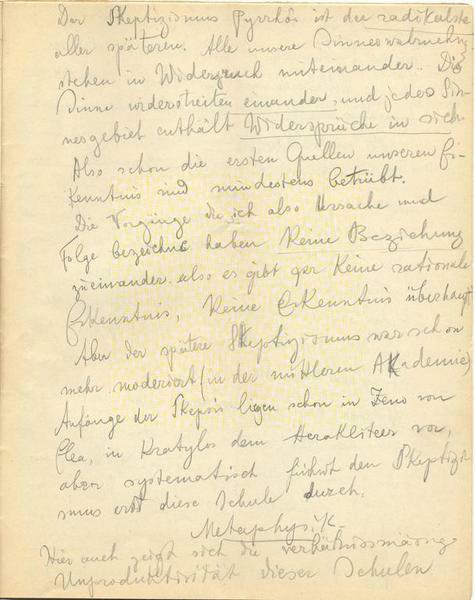 Der Skeptizismus Pyrrhós ist der radikalste
aller späteren. Alle unsere Sinneswahrnehm
stehen in Widerspruch miteinander. Die
Sinne widerstreiten einander, und jedes Sin-
nesgebiet enthält Widersprüche in sich
Also schon die ersten Quellen unserer Er-
kenntnis sind mindestens betrübt.
Die Vorgänge die ich also Ursache und
Folge bezeichne haben keine Beziehung
zueinander. also es gibt gar keine rationale
Erkenntnis, keine Erkenntnis überhaupt
Aber der spätere Skeptizismus war schon
mehr moderiert (in der mittleren Akademie)
Anfänge der Skepsis liegen schon in Zeno von
Elea, in Kratylos dem Herakliteer vor,
aber systematisch führt den Skeptizi
smus erst diese Schule durch.
Metaphysik.
Hier auch zeigt sich die verhältnismässige
Unproduktivität dieser Schulen